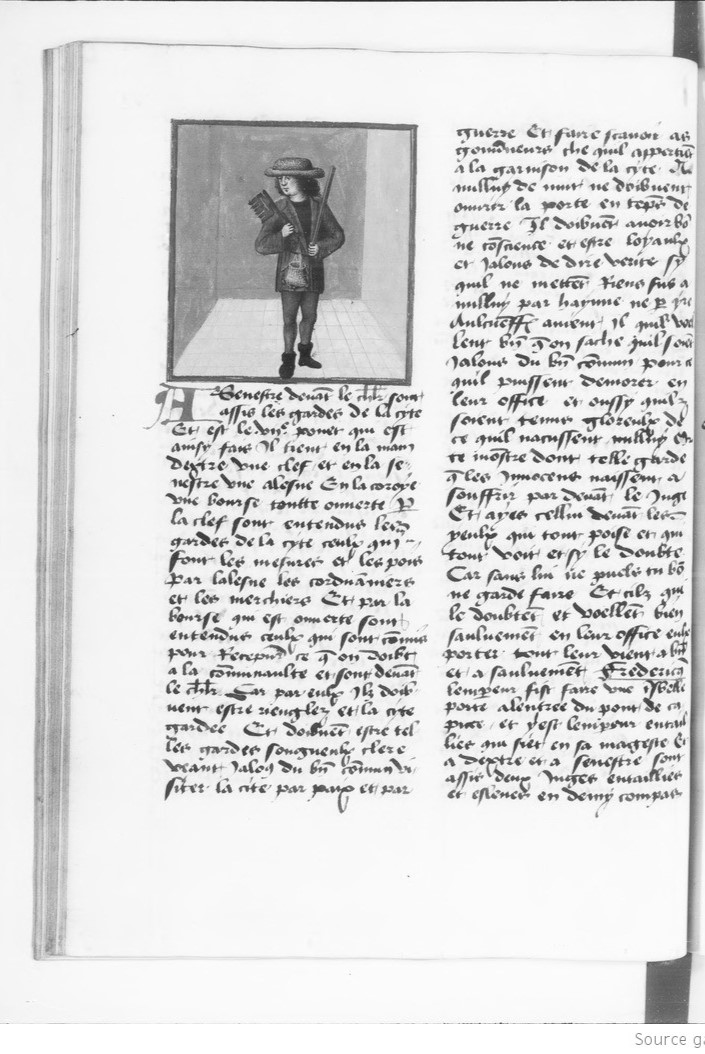 A Senestre deuāt le chlr sont
assis les gardes de la cyte
Et est le vnᵉ ponet qui est
ainsy fais Il tient en la main
dextre vne clef et en la se-
nestre vne alesne En la coroye
vne bourse toutte ouuerte Pͬ
la clef sont entendus les
gardes de la cyte ceulx qui
sont les mesures et les pois
par lalesne les corduāniers
et les merchiers Et par la
bourse qui est ouuerte sont
entendus ceulx qui sont cōmis
pour Recepuoir ce q̄ on doibt
a la cōmunaulte et sont deuāt
le chlr. Car par eulx Ilz doib-
uent estre rieuglez et la cyte
gardee Et doibuēt estre tel
les gardes songneulx clere
veant Jaloux du bn̄ cōmun vi-
siter la cite par paix et par
guerre Et faire scauoir as
gouuerneurs che quil appertiēt
a la garnison de la cyte
nulluy de nuit ne doibuent
ouurir la porte en tēps de
guerre Il doibuēt auoir bō
ne cōscience et estre loyaulx
et Jalous de dire verite sy
quil ne mettēt Riens sus a
nulluy par hayne ne p̄ yre
auient Il quil voel
lent bn̄ q̄ on sache quil soiēt
Jalous du bn̄ cōmun pour ce
quil puissent demorer en
leur office et oussy quilz
soient tenus glorieulx de
ce quil nacussent nulluy
te monstre dont telle garde
q̄ les Innocens naissent a
souffrir par deuāt le Juge
Et ayes celluy deuāt les
yeulx qui tout poise et qui
tout voit et sy le doubte
Car sans lui ne puels tu bō
ne garde faire Et cilz qui
le doubtēt et voellēt bien
sauluemēt en leur office eulx
porter tout leur vient a bn̄
et a sauluemēt Frederic
lempeur fist faire vne
porte alentree du pont de ca
pue et yest lempeur entail
lies qui siet en sa mageste Et
a dextre et a senestre sont
assis deux Juges entaillies
et esleues en demy compas
Source ga